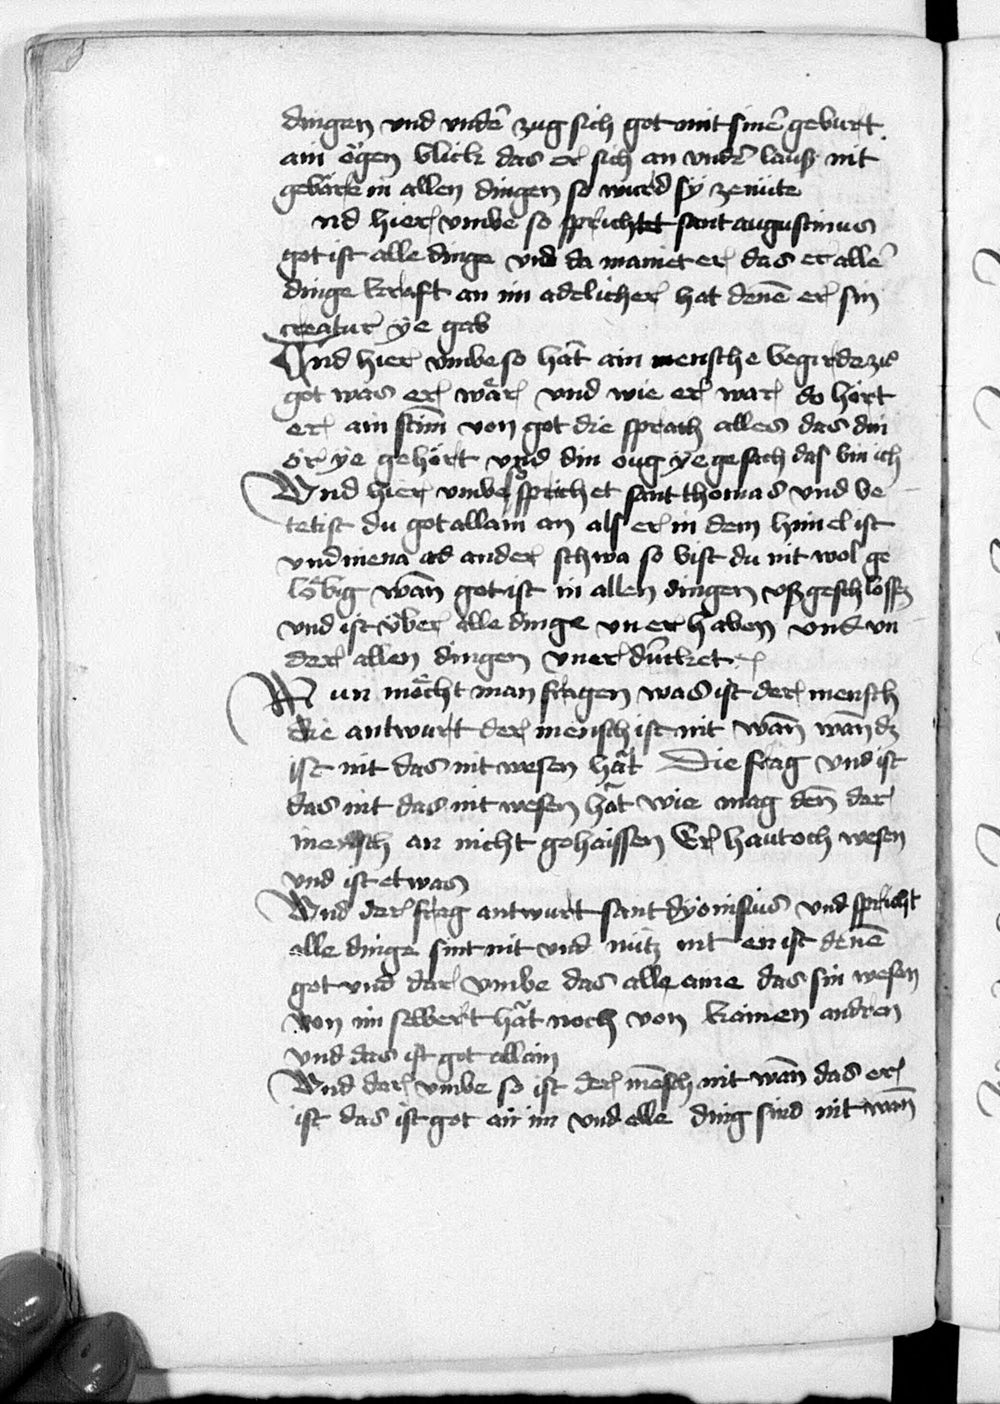 dingen vnd vndē zug sich got mit sinē geburt
ain ögen blick das er sich an vndr̄ lauß nit
gebärte in allen dingen so wurd sÿ zenüte
nd hier vmbe so sprichtet sant augustinus
got ist alle dinge vnd da mainet er das er allē
dinge kraft an im adelicher hat denē er sin
creatur ÿe gab
Vnd hier vmbe so hāt ain mensche begirde zů
got was er wār vnd wie er war do hört
er ain stim̄ von got die sprach alles das din
ör ÿe gehört vnd din oug ÿe gesach das bin ich
Wnd hier vmbe sprichet sant thomas vnd be
tetist du got allain an als er in dem himel ist
vnd niena ad ander schwa so bist du nit wol ge
löbig wān got ist in allen dingen vßgeschlossē
vnd ist vͤber alle dinge vn er haben vnd vn
der allen dingen vner drucket
Nun möcht man fragen was ist der mensch
die antwurt der mensch ist nit wān wān dz
ist nit das nit wesen hāt Die frag vnd ist
das nit das nit wesen hāt wie mag den̄ der
mensch an nicht gehaissen Er haut och wesen
vnd ist etwas
Wnd der frag antwurt sant dÿonisius vnd spricht
alle dinge sint nit vnd nütz nit en ist denē
got vnd dar vmbe das alle aine das sin wesen
von im selbert hāt noch von kainen andren
vnd das ist got allain
Wnd dar vmbe so ist der mēsch nit wān das er
ist das ist got ain im vnd alle ding sind nit wān